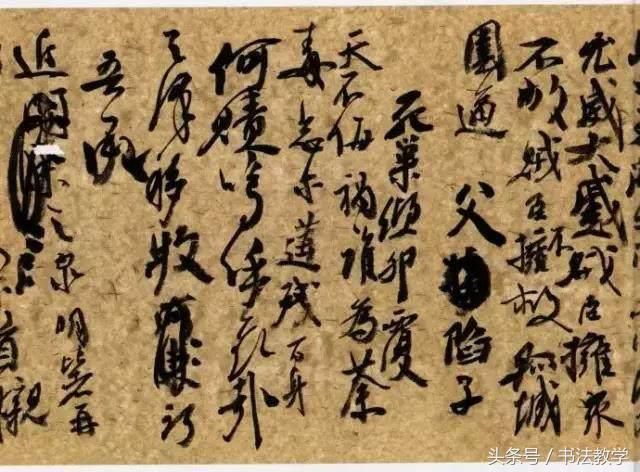 大蹙賊臣擁眾
不救賊臣不擁救孤城
圍逼父陷子
死巢傾卵覆
天不悔禍誰為荼
毒念爾遘殘百身
何贖嗚呼哀哉
天澤移牧
吾承
近
泉明比者再
首櫬
头条号／书法教学